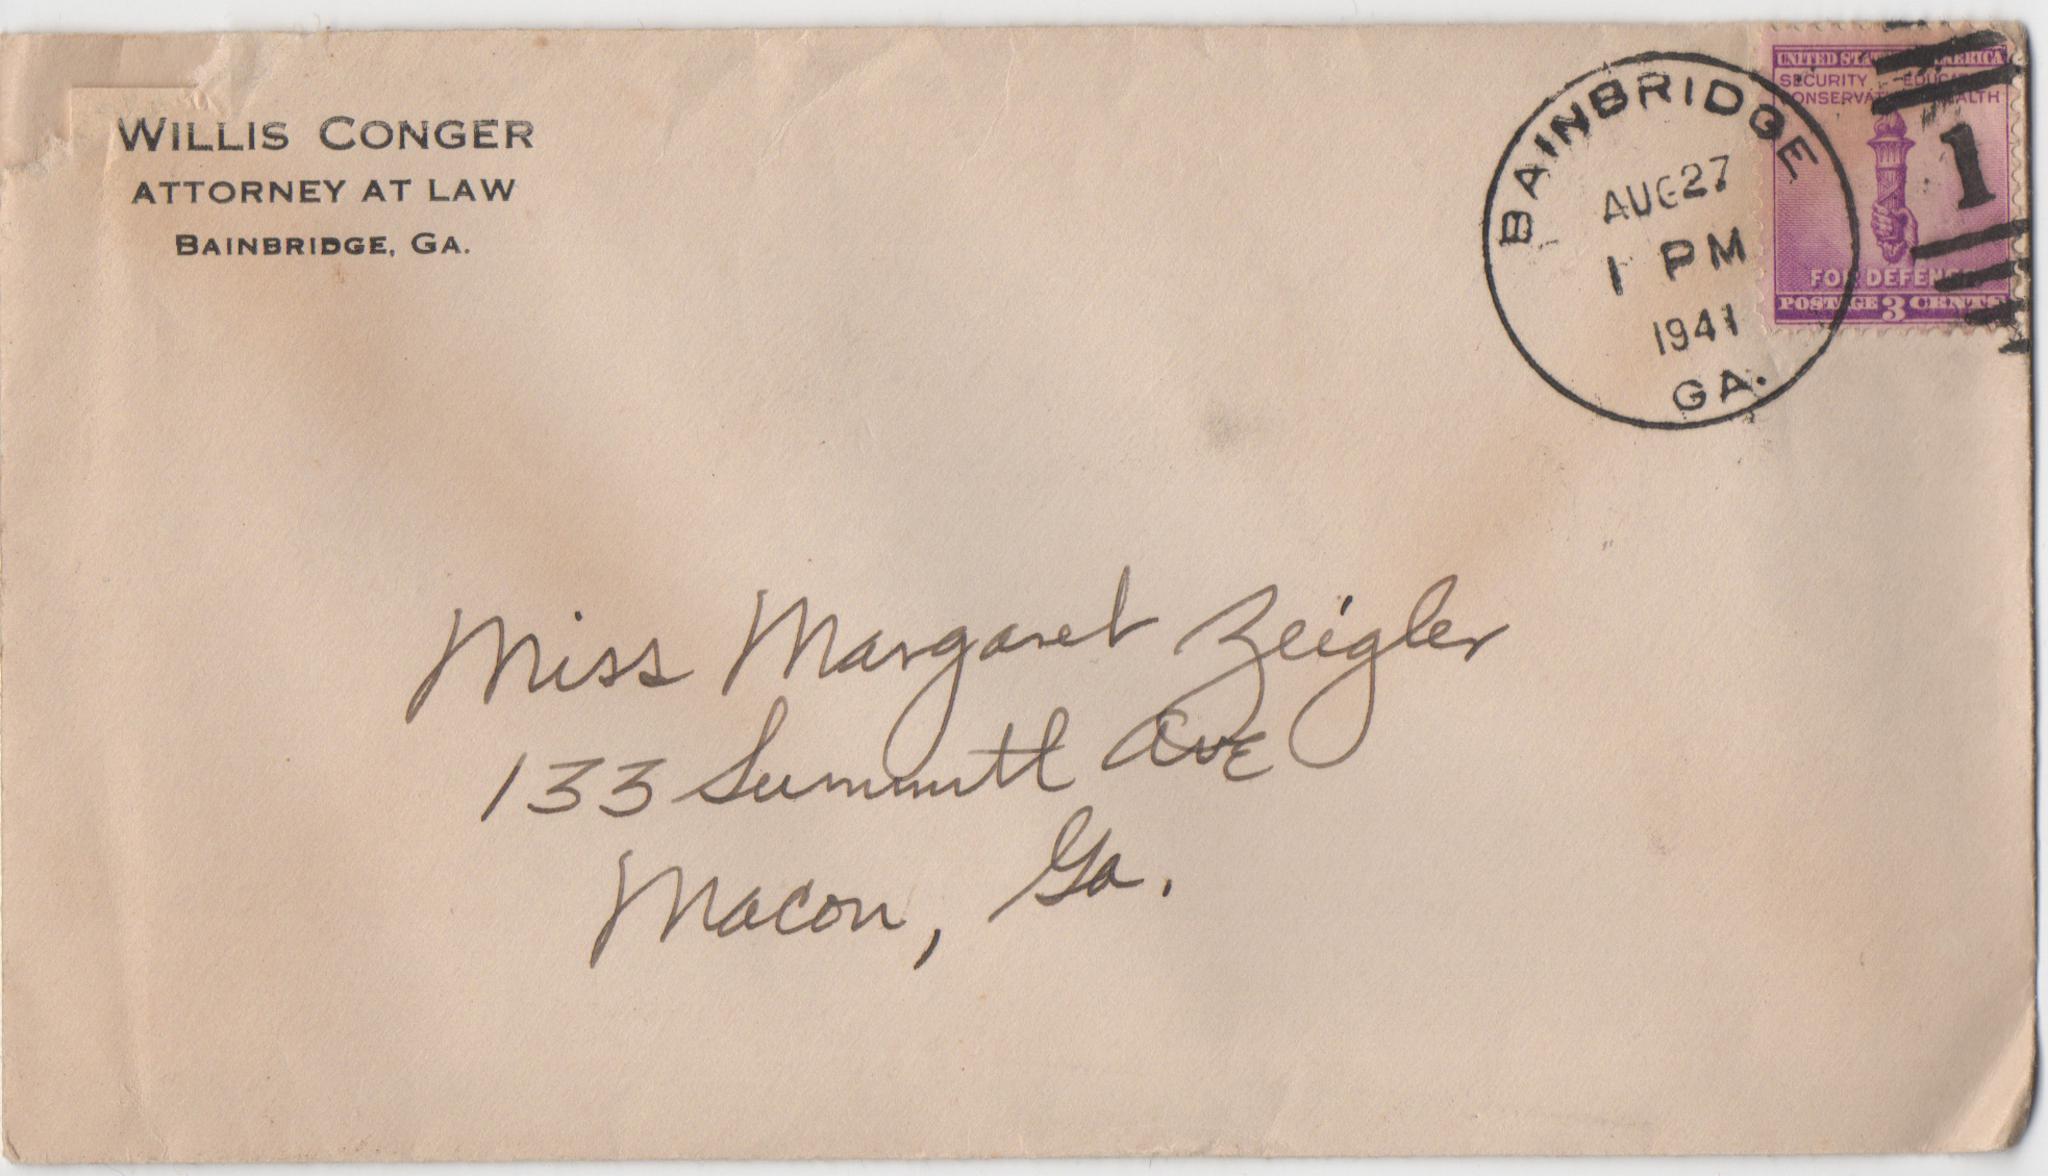 WILLIS CONGER
ATTORNEY AT LAW
BAINBRIDGE, GA.
BAINBRIDGE
AUG 27
1 PM
1941
GA.
1
UNITED STATES OF AMERICA
SECURITY EDUCATION
CONSERVATION HEALTH
FOR DEFENSE
POSTAGE 3 CENTS
Miss Margaret Zeigler
133 Summitt Ave
Macon, Ga.